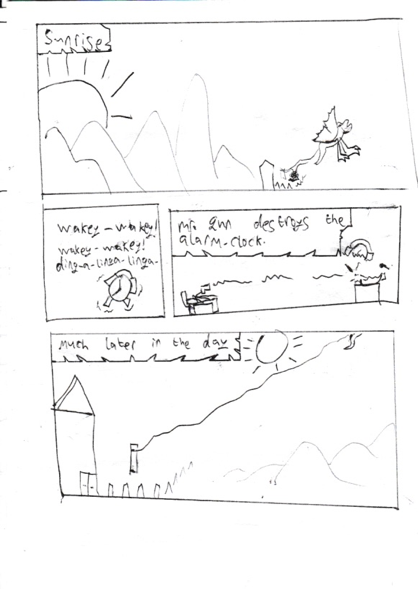 Sunrise
wakey-wakey!
wakey-wakey!
ding-a-linga-linga-
destroys the
alarm-clock.
Much later in the day